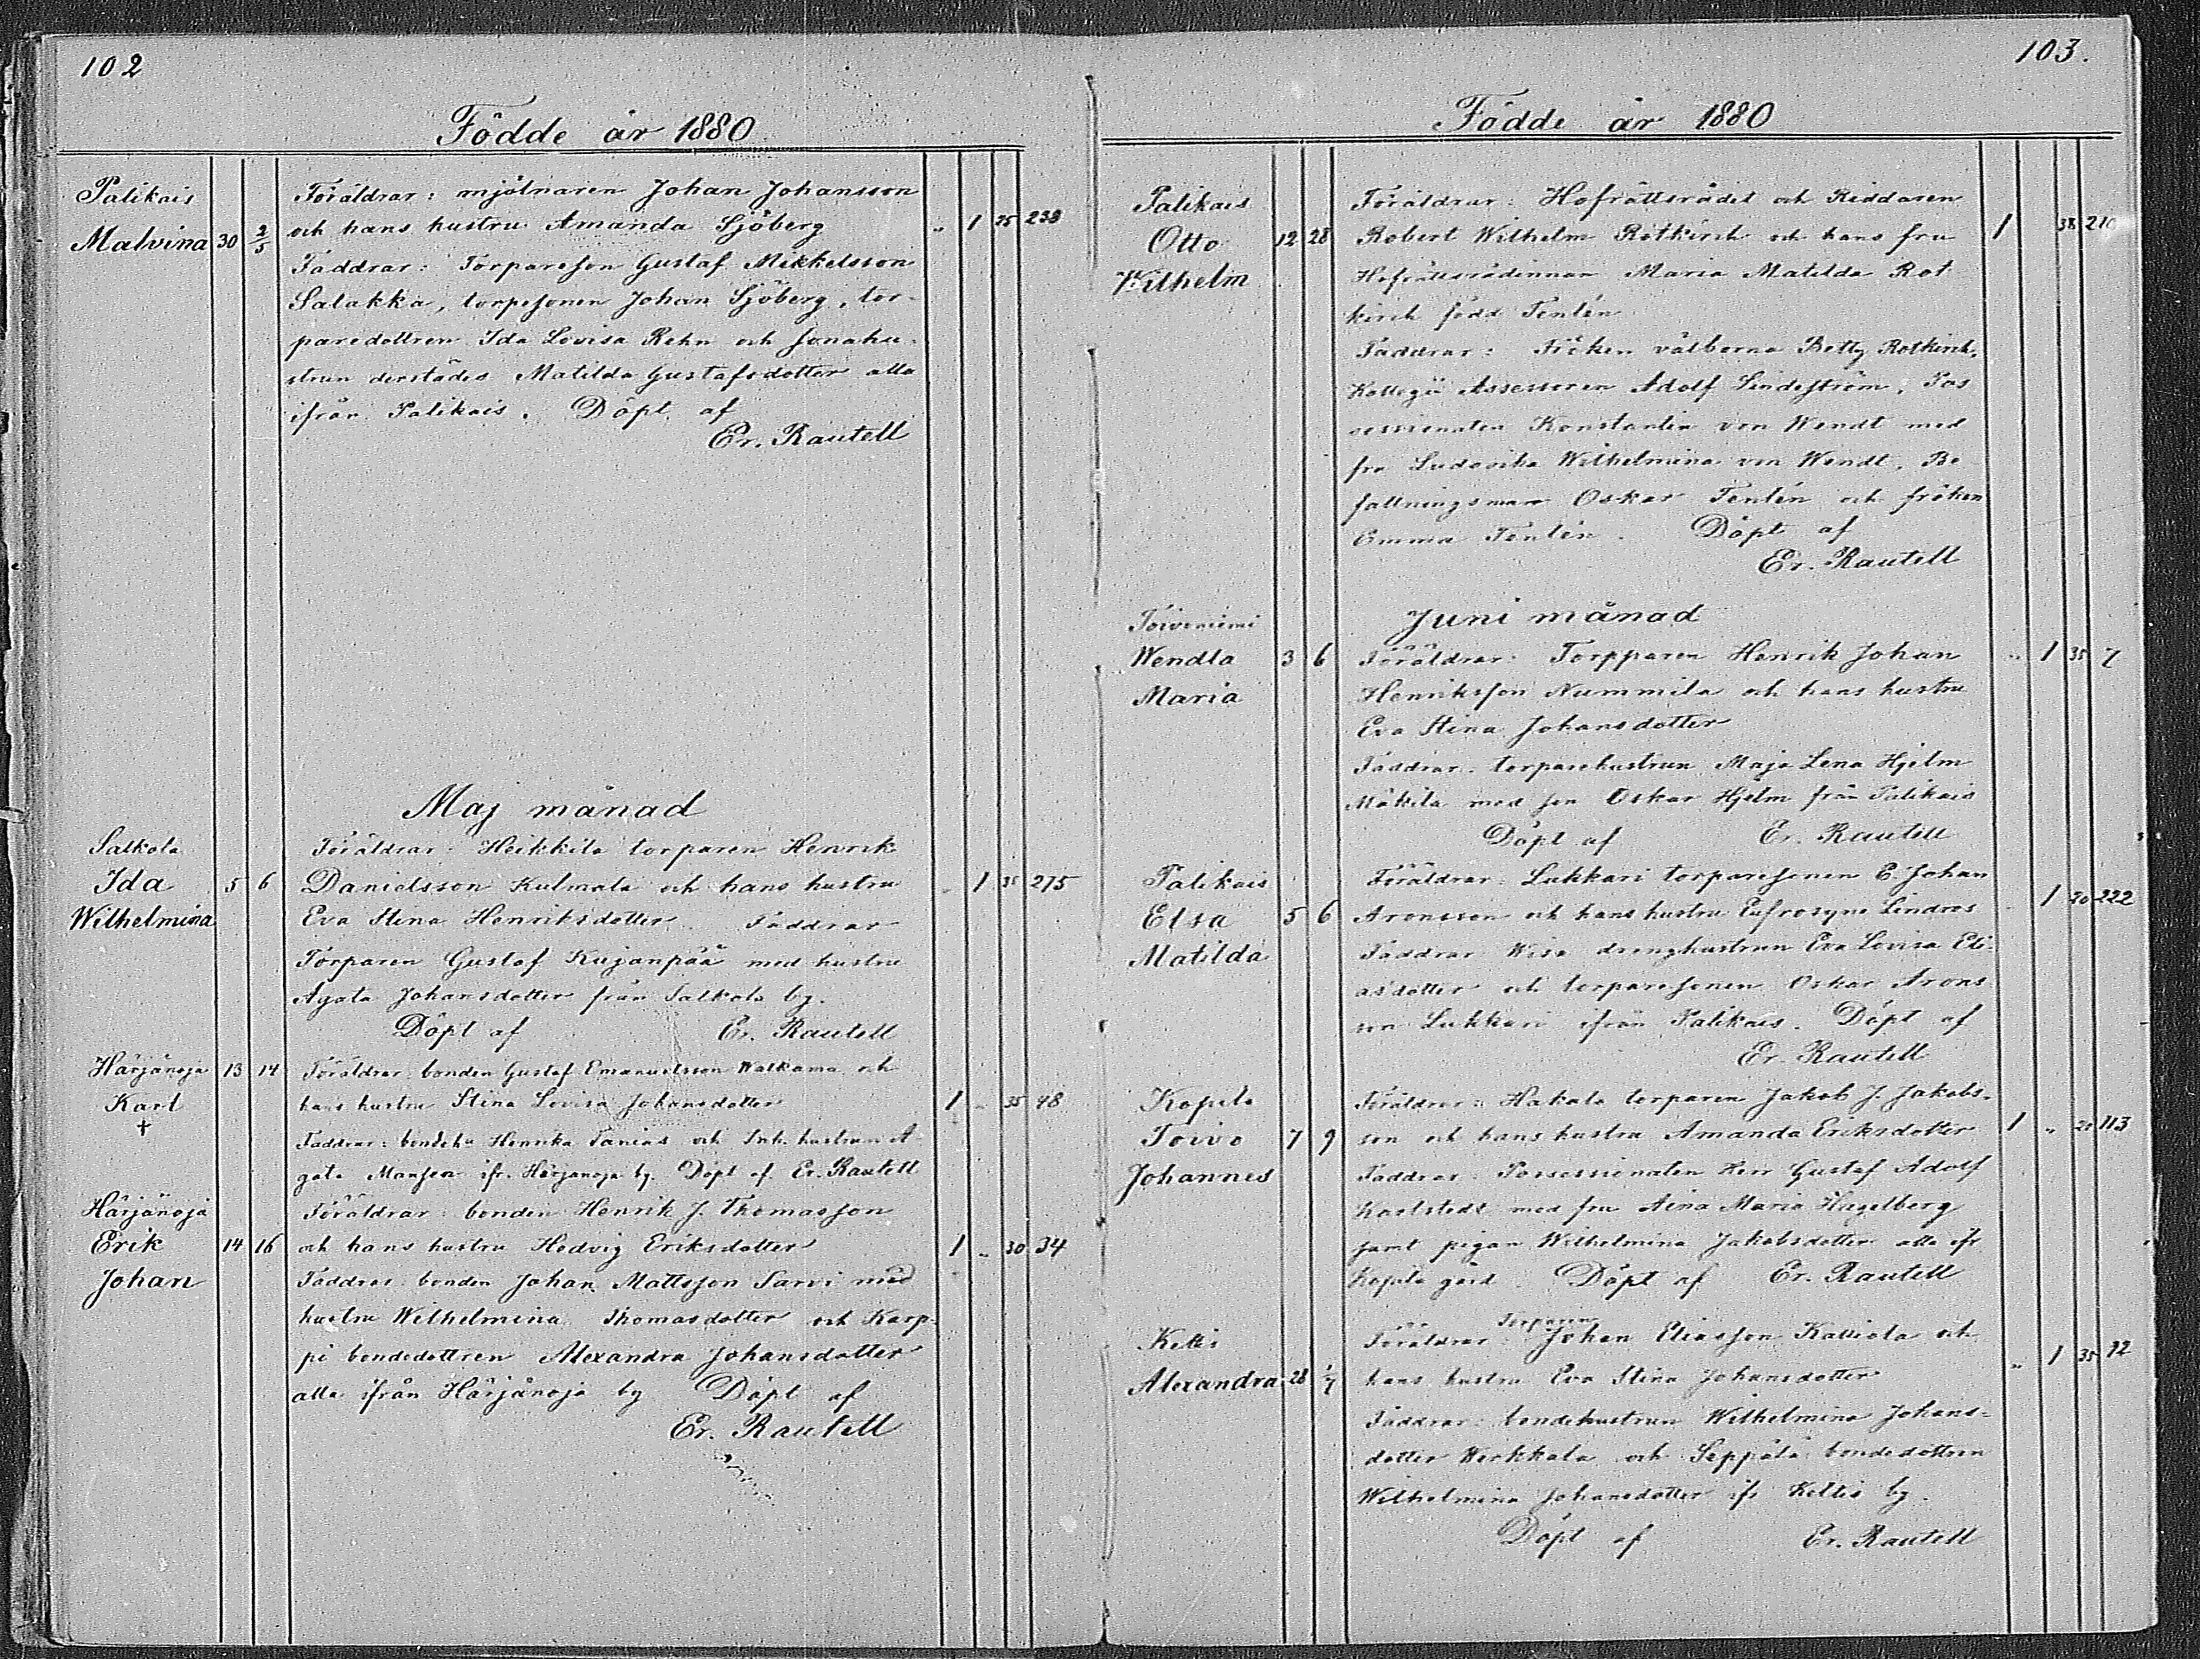 102
Födde år 1880
Palikais
Malvina 30 2/5
Föräldrar: mjölnaren Johan Johansson
och hans hustru Amanda Sjöberg " 1 25 238
Faddrar: Torparesson Gustaf Mikkelsson
Salakka, torpesonen Johan Sjöberg, tor-
paredottren Ida Lovisa Rehn och sonahu-
strun derstädes Matilda Gustafsdotter alla
ifrån Palikais. Döpt af
Er. Rautell
Maj månad
Salkola
Ida 5 6
Wilhelmina
Föräldrar: Heikkilä torparen Henrik
Danielsson Kulmala och hans hustru " 1 35 275
Eva Stina Henriksdotter. Faddrar
Torparen Gustaf Kujanpää med hustru
Agata Johansdotter från Salkola by.
Döpt af Er. Rautell
Härjänoja 13 14
Karl
†
Föräldrar: bonden Gustaf Emanuelsson Walkama och
hans hustru Stina Lovisa Johansdotter 1 " 35 48
Faddrar: bondehu Henrika Tanias och Inh. hustrun A-
gata Mansson ifr. Härjänoja by. Döpt af Er. Rautell
Härjänoja
Erik 14 16
Johan
Föräldrar: bonden Henrik J. Thomasson
och hans hustru Hedvig Eriksdotter 1 " 30 34
Faddrar: bonden Johan Mattsson Sarvi med
hustru Wilhelmina Thomasdotter och Karp-
pi bondedottren Alexandra Johansdotter
alla ifrån Härjänoja by Döpt af
Er. Rautell
103.
Födde år 1880
Palikais
Otto 12 28
Wilhelm
Föräldrar: Hofrättsrådet och Riddaren
Robert Wilhelm Rotkirch och hans fru 1 38 210
Hofrättsrådinnan Maria Matilda Rot
kirch född Tentén
Faddrar: Fröken välborna Betty Rotkirch,
Kollegii Assessoren Adolf Lindeström, Pos
sessionaten Konstantin von Wendt med
fru Ludovika Wilhelmina von Wendt, Be
fallningsman Oskar Tentén och fröken
Emma Tentén. Döpt af
Er. Rautell
Juni månad
Toivoniemi
Wendla 3 6
Maria
Föräldrar: Torpparen Henrik Johan " 1 35 7
Henriksson Nummila och hans hustru
Eva Stina Johansdotter
Faddrar: torparehustrun Maja Lena Hjelm
Mäkilä med son Oskar Hjelm från Palikais
Döpt af Er. Rautell
Palikais
Elsa 5 6
Matilda
Föräldrar: Lukkari torparesonen E. Johan
Aronsson och hans hustru Eufrosyne Lindros 1 20 222
Faddrar: Wisa drenghustrun Eva Lovisa Eli-
asdotter och torparesonen Oskar Arons
son Lukkari ifrån Palikais. Döpt af
Er. Rautell
Kojola
Toivo 7 9
Johannes
Föräldrar: Hakala torparen Jakob J. Jakobs-
son och hans hustru Amanda Eriksdotter 1 " 21 113
Faddrar: Possessionaten Herr Gustaf Adolf
Karlstedt med fru Aina Maria Hagelberg
samt pigan Wilhelmina Jakobsdotter alla ifr
Kojola gård. Döpt af Er. Rautell
Keltis
Alexandra 28 1/7
Föräldrar: Torparen Johan Eliasson Kalliola och
hans hustru Eva Stina Johansdotter " 1 35 12
Faddrar: bondehustrun Wilhelmina Johans-
dotter Werkkala och Seppälä bondedottren
Wilhelmina Johansdotter ifr Keltis by.
Döpt af Er. Rautell